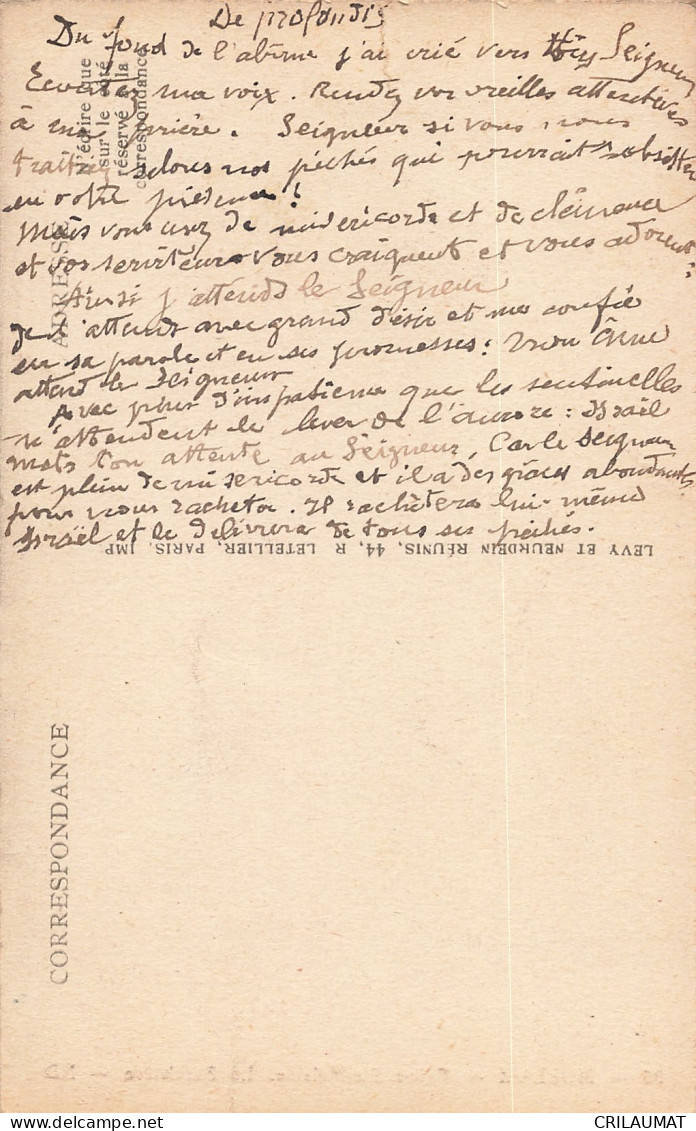 De profondis
Du fond de l'abîme j'ai crié vers Seigneur
Ecoutez ma voix. Rendez vos oreilles attentives
à ma prière. Seigneur si vous nous
traitez selons nos péchés qui pourrait subsister
en votre présence!
Mais vous usez de miséricorde et de clémence
et vos serviteurs vous craignent et vous adorent:
Ainsi j'attends le Seigneur
Je l'attends avec grand désir et me confie
en sa parole et en ses promesses: mon âme
attend le Seigneur
Avec plus d'impatience que les sentinelles
n'attendent le lever de l'aurore: Israël
mets ton attente au Seigneur, Car le Seigneur
est plein de miséricorde et il a des grâces abondantes
pour nous racheter. Il rachètera lui-même
Israël et le délivrera de tous ses péchés.
LEVY ET NEURDEIN RÉUNIS, 44, R LETELLIER, PARIS. IMP
ADRESSE
N'écrire que
sur le côté
réservé à la
correspondance
CORRESPONDANCE
CRILAUMAT